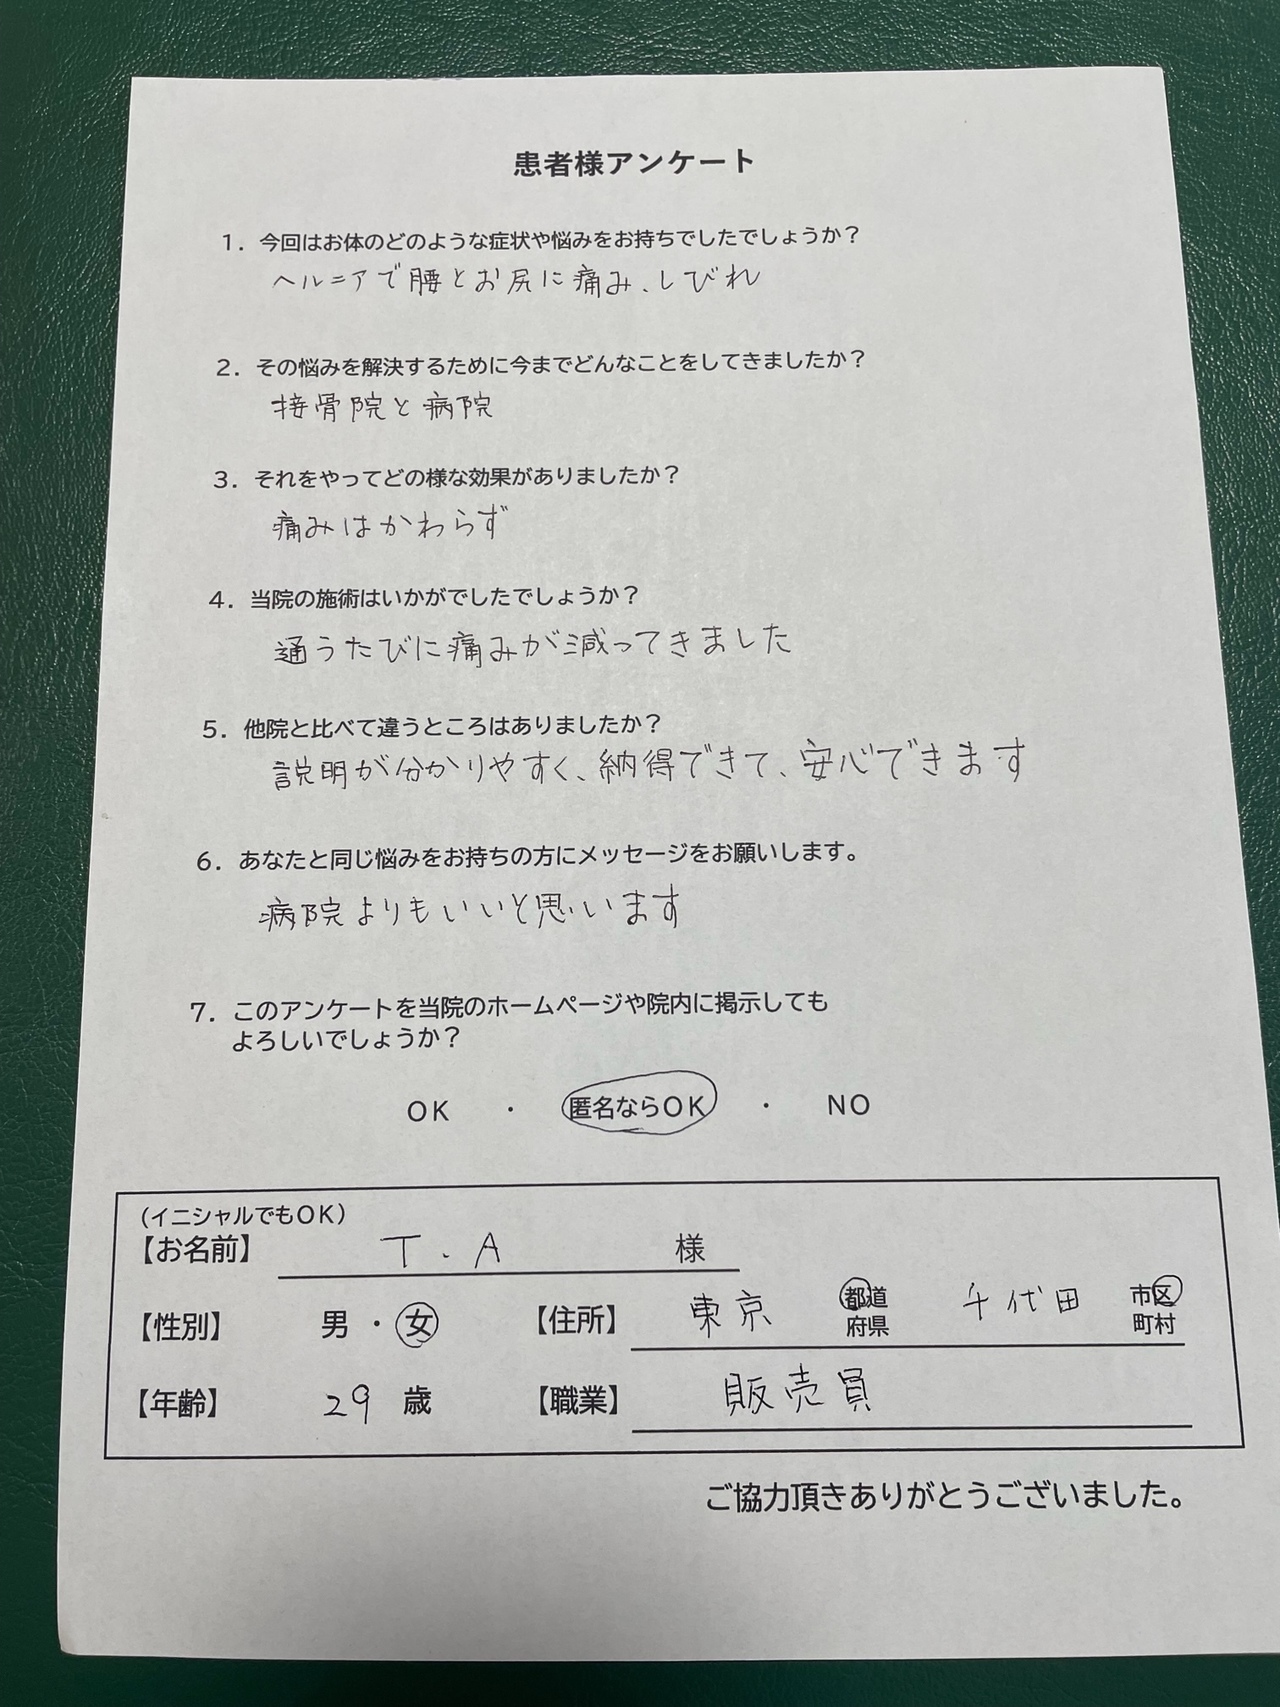 患者様アンケート
1. 今回はお体のどのような症状や悩みをお持ちでしたでしょうか？
ヘルニアで腰とお尻に痛み、しびれ
2. その悩みを解決するために今までどんなことをしてきましたか？
接骨院と病院
3. それをやってどの様な効果がありましたか？
痛みはかわらず
4. 当院の施術はいかがでしたでしょうか？
通うたびに痛みが減ってきました
5. 他院と比べて違うところはありましたか？
説明が分かりやすく、納得できて、安心できます
6. あなたと同じ悩みをお持ちの方にメッセージをお願いします。
病院よりもいいと思います
7. このアンケートを当院のホームページや院内に掲示しても
よろしいでしょうか？
OK ・ 匿名ならOK ・ NO
（イニシャルでもOK）
【お名前】 T.A 様
【性別】 男・女 【住所】 東京 都道府県 千代田 市区町村
【年齢】 29 歳 【職業】 販売員
ご協力頂きありがとうございました。